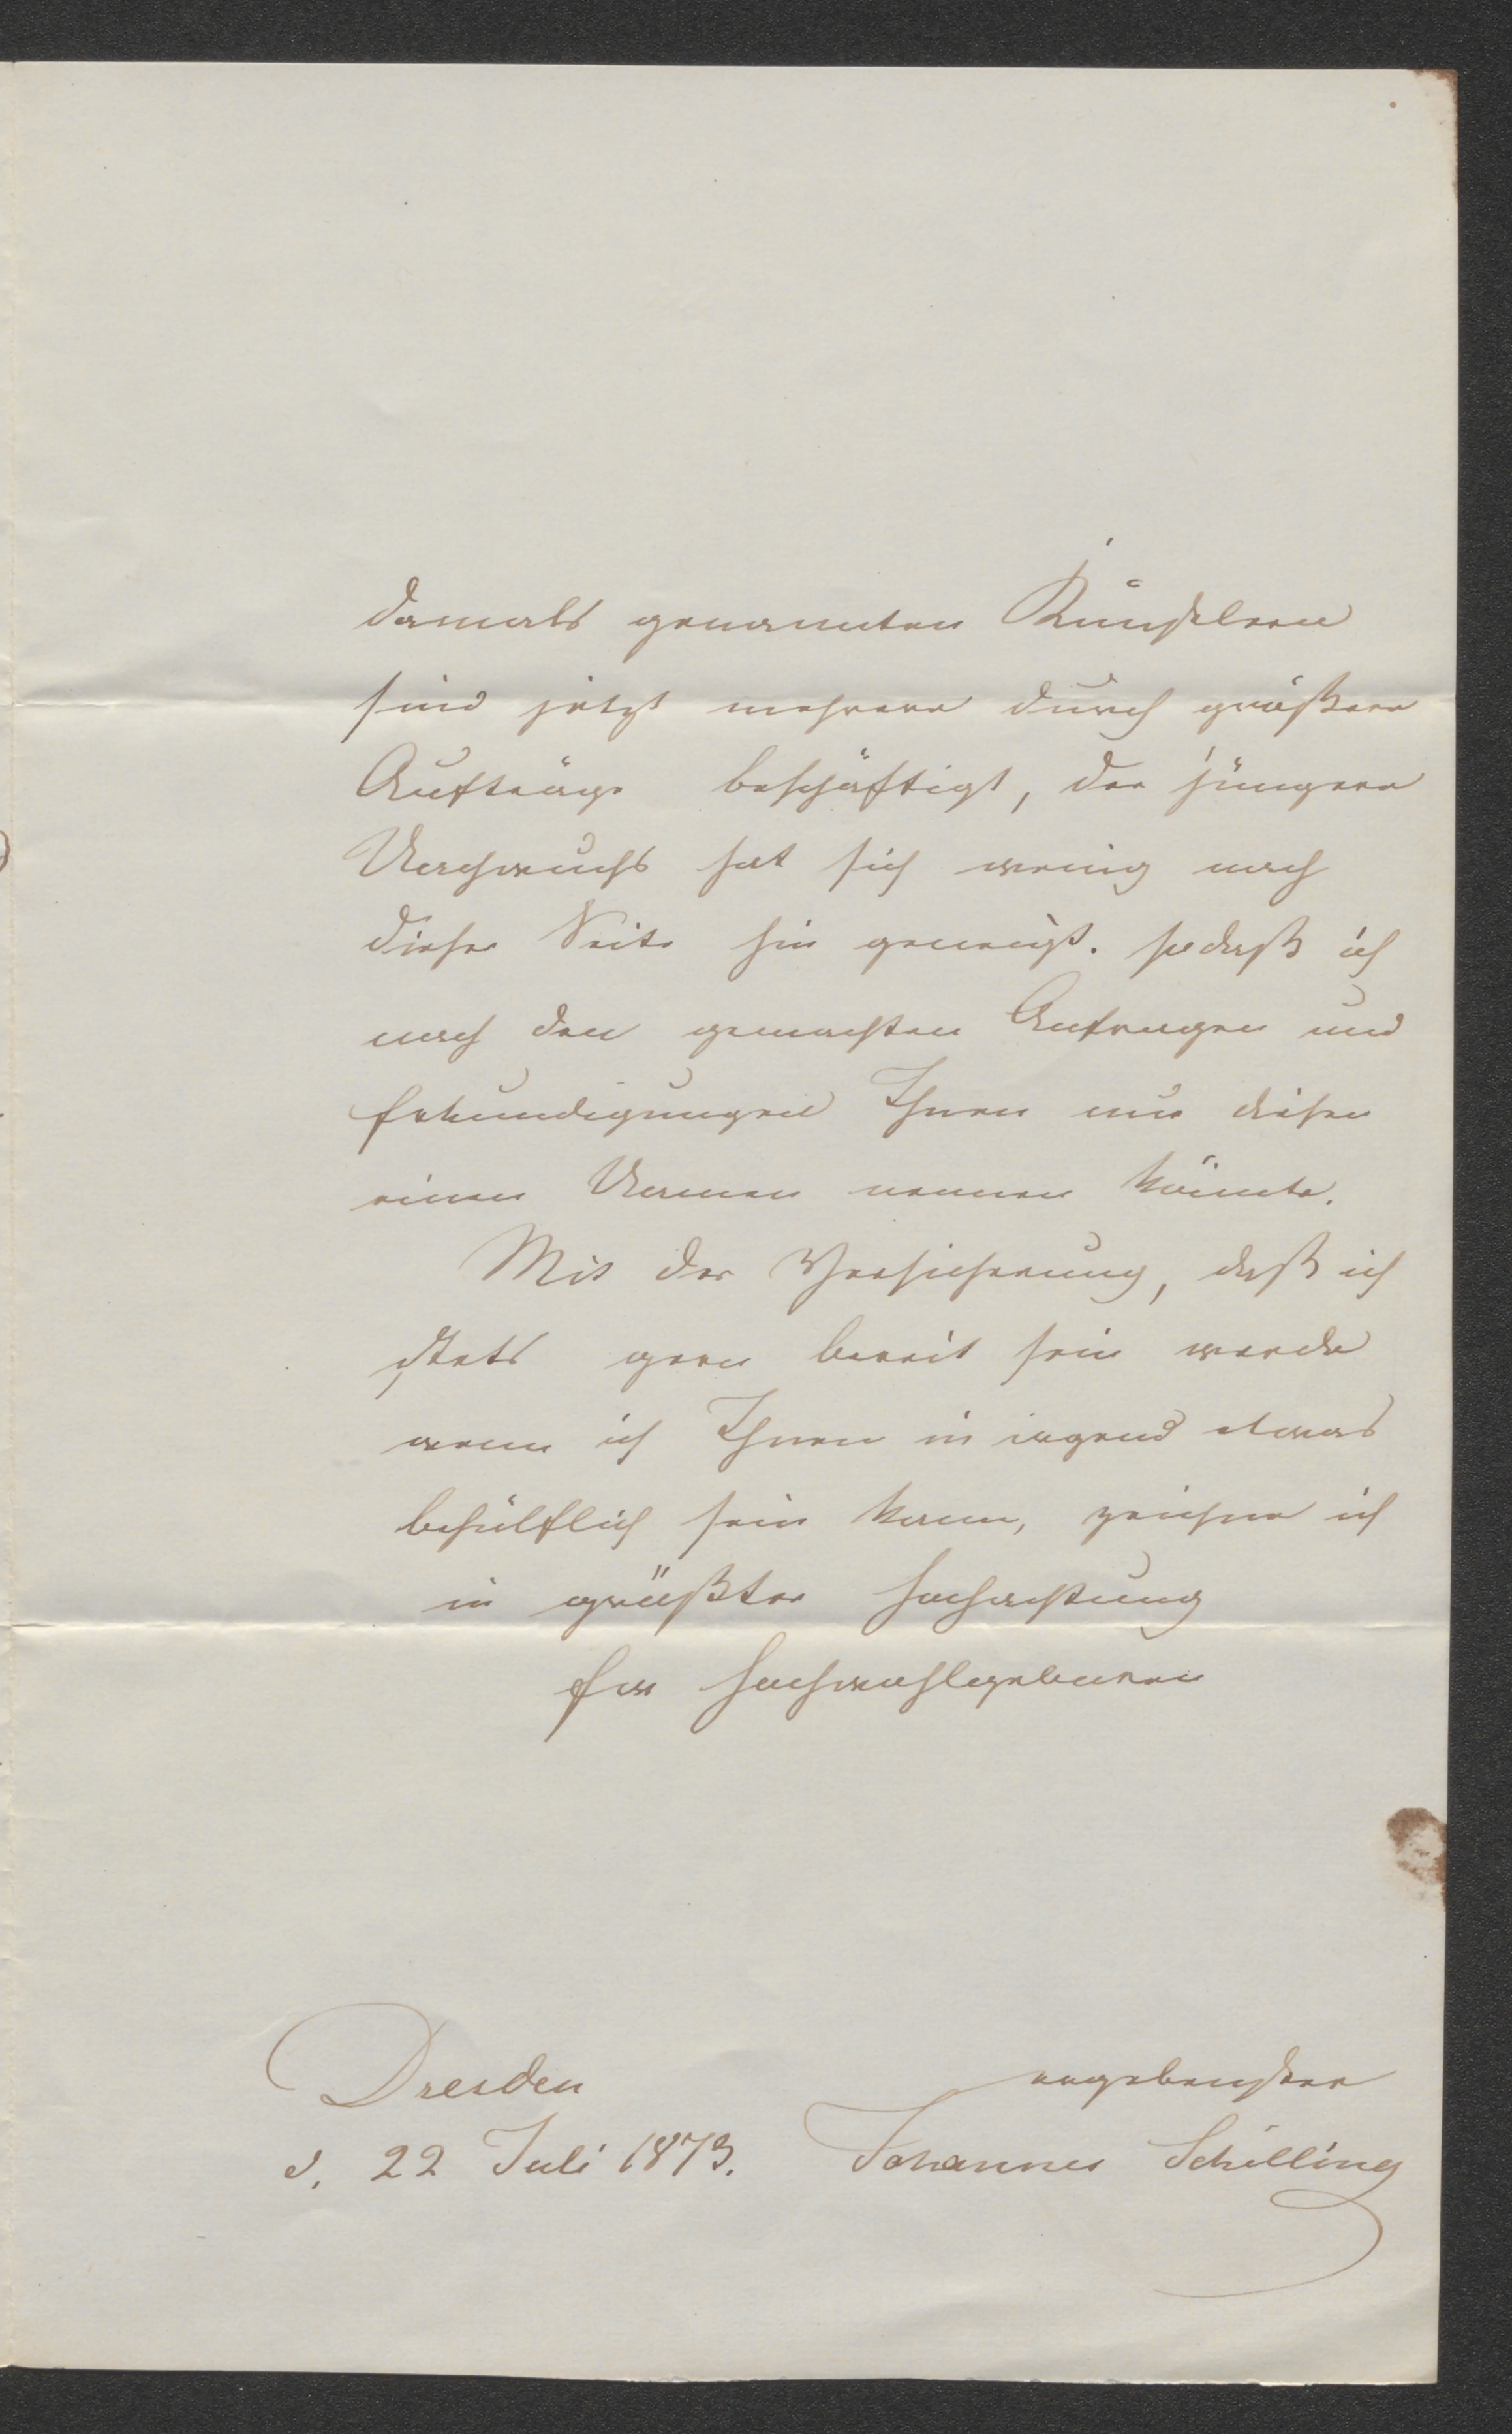 damals genannten Künstlern
sind jetzt mehrere durch größere
Aufträge beschäftigt, der jüngere
Nachwuchs hat sich wenig nach
dieser Seite hin geneigt. sodaß ich
nach den gemachten Anfragen und
Erkundigungen Ihnen nur diesen
einen Namen nennen könnte.
Mit der Versicherung, daß ich
stets gern bereit sein werde
wenn ich Ihnen in irgend etwas
behülflich sein kann, zeichne ich
in größter Hochachtung
Ew Hochwohlgeboren
Dresden
d. 22 Juli 1873.
ergebenster
Johannes Schilling